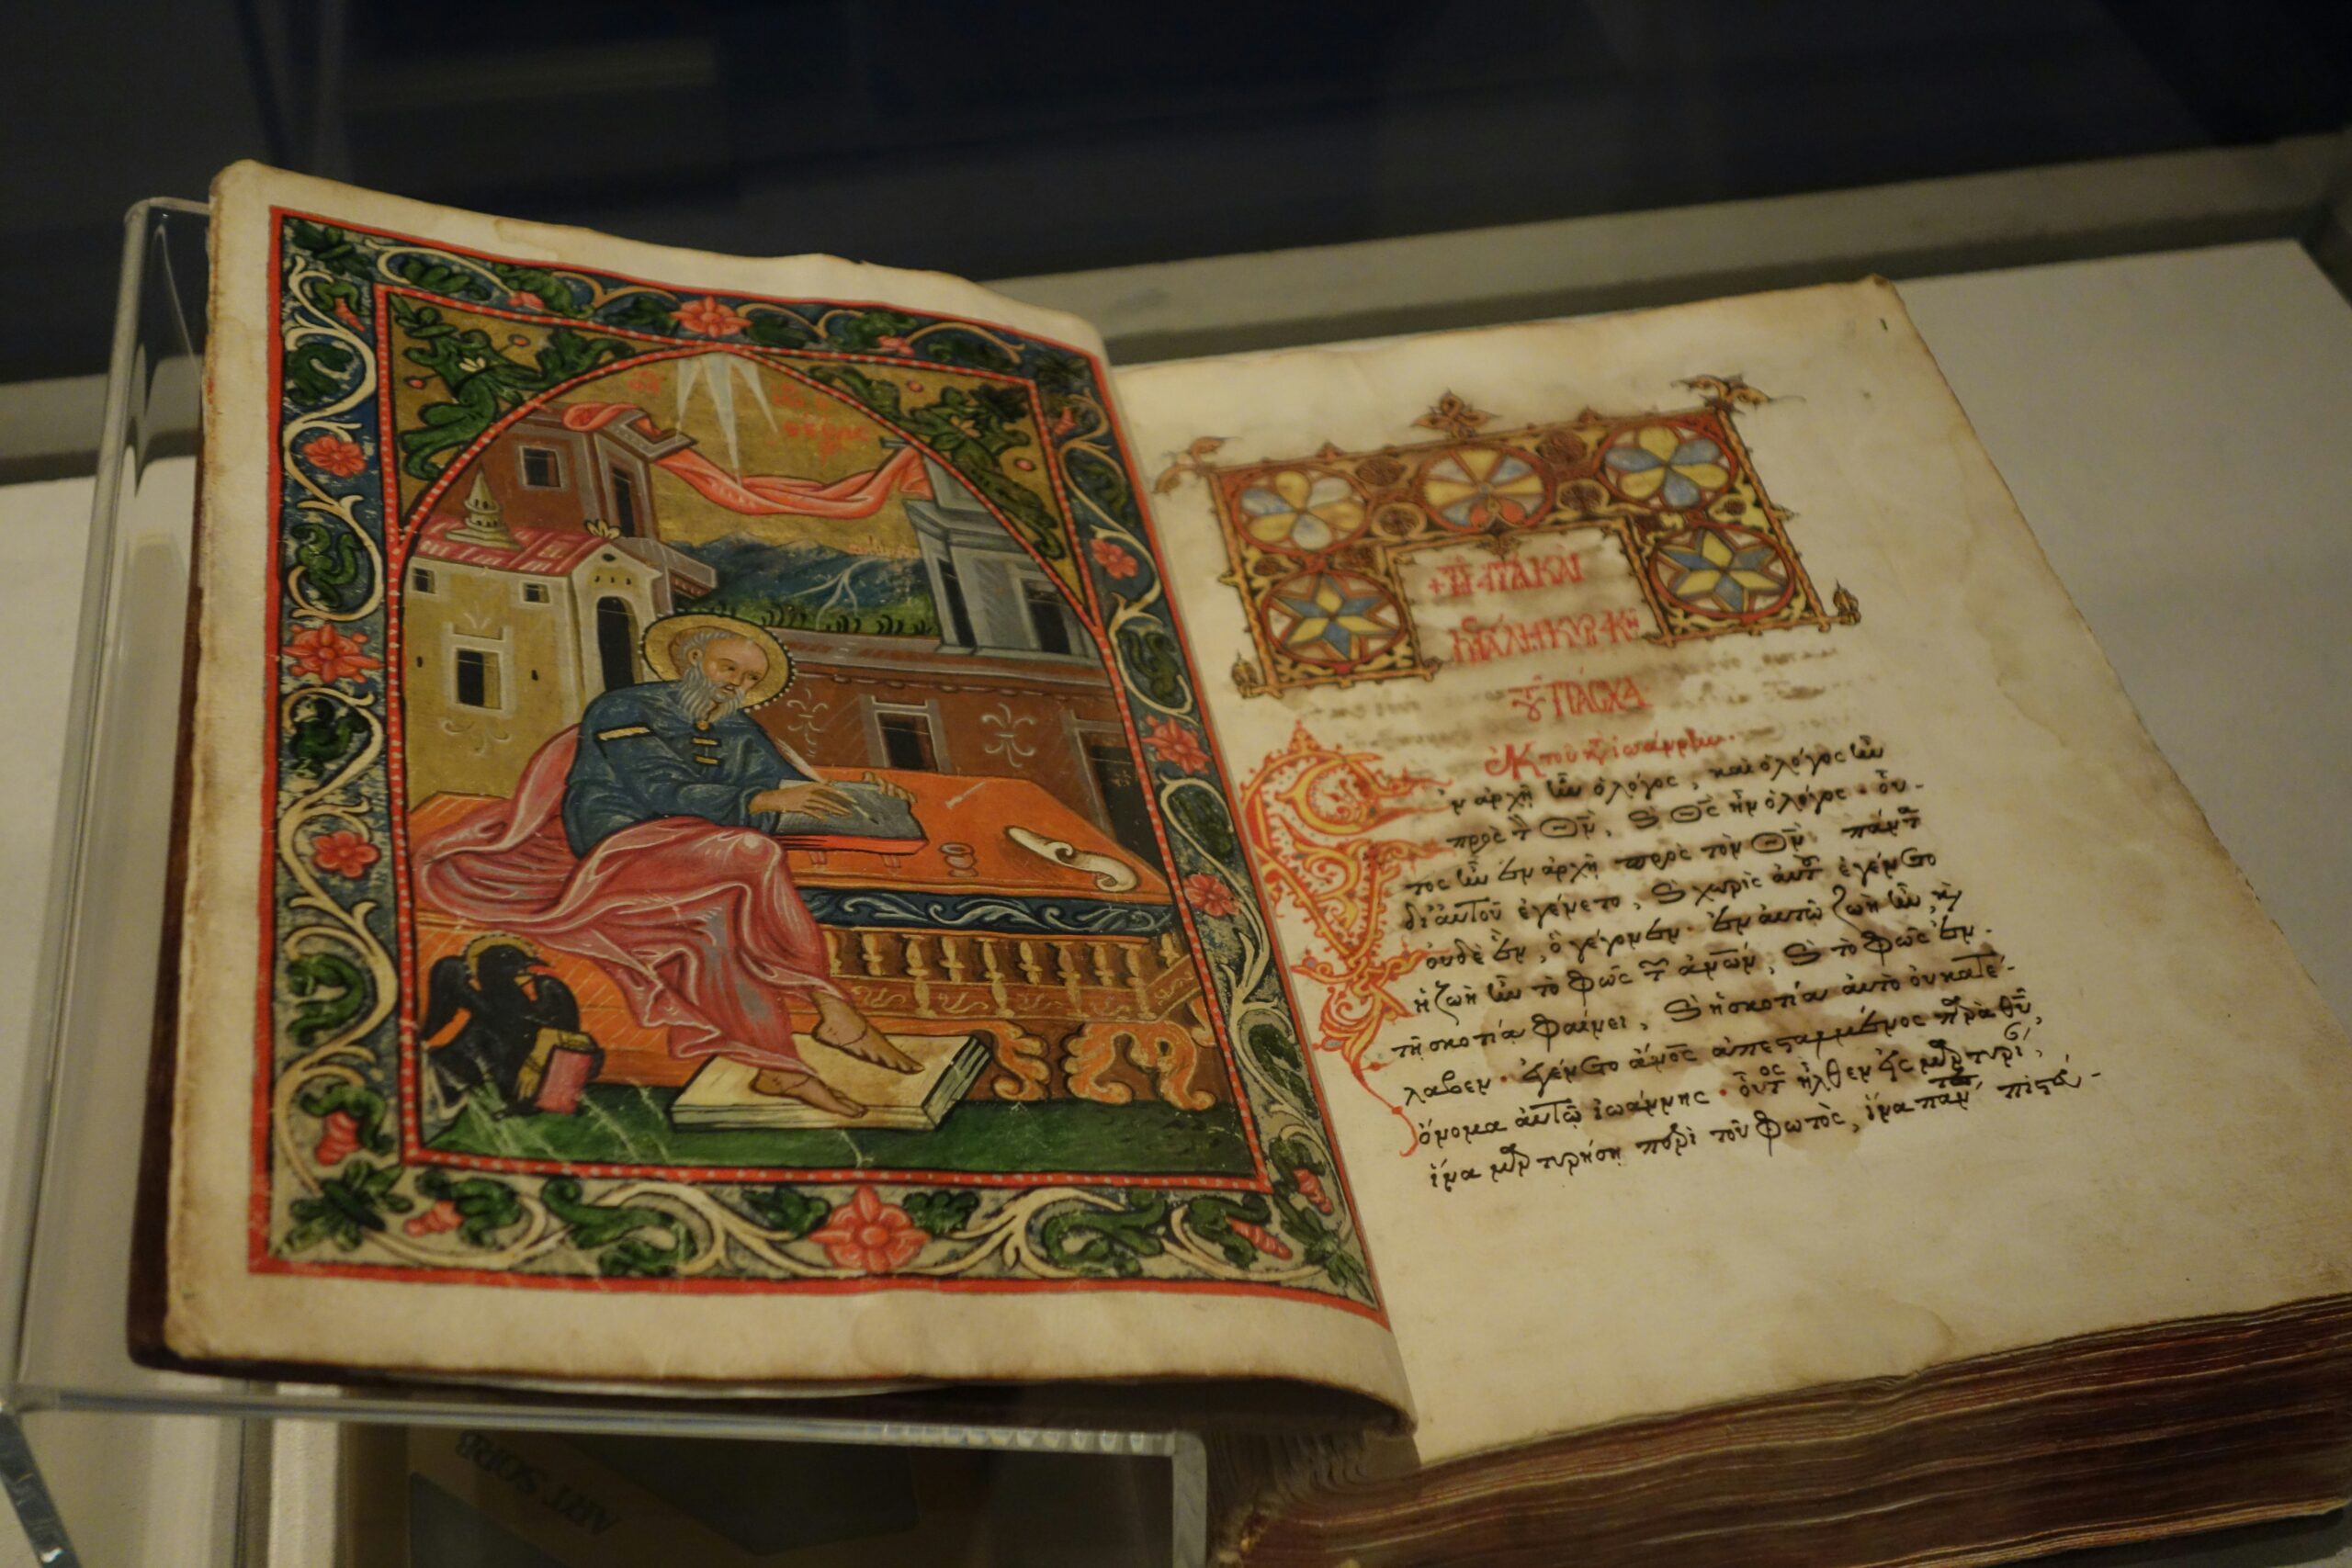 ΤΟΥ ΠΑΣΧΑ
ἐκ τοῦ κατὰ ἰωάννην.
Ἐν ἀρχῇ ἦν ὁ λόγος, καὶ ὁ λόγος ἦν
πρὸς τ Θν, καὶ Θς ἦν ὁ λόγος· οὗ-
τος ἦν ἐν ἀρχῇ πρὸς τὸν Θν· πάντ
δι' αὐτοῦ ἐγένετο, καὶ χωρὶς αὐτ ἐγένετο
οὐδὲ ἕν, ὃ γέγονεν· ἐν αὐτῷ ζωὴ ἦν, καὶ
ἡ ζωὴ ἦν τὸ φῶς τ ἀνων, καὶ τὸ φῶς ἐν
τῇ σκοτίᾳ φαίνει, καὶ ἡ σκοτία αὐτὸ οὐ κατέ-
λαβεν· ἐγένετο ἀνος ἀπεσταλμένος παρὰ θυ,
ὄνομα αὐτῷ ἰωάννης· οὗτος ἦλθεν εἰς μαρτυρί,
ἵνα μαρτυρήσῃ περὶ τοῦ φωτὸς, ἵνα παν πιστεύ-
ART SORB